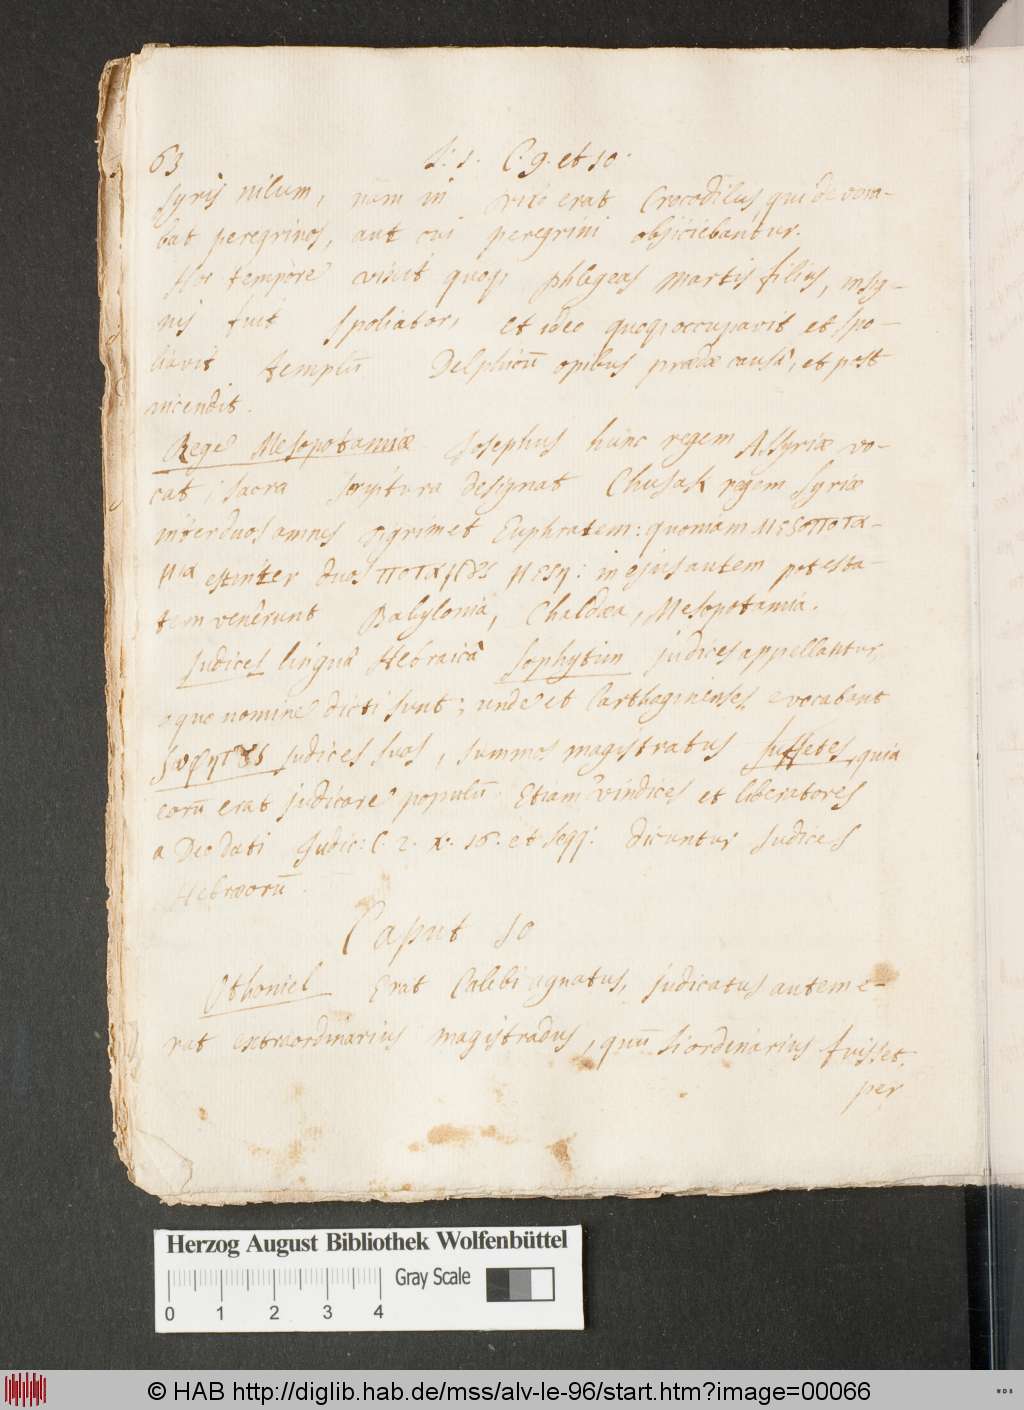 63 L: 1. C. 9. et 10.
syris nilum, nam in erat Crocodilus, qui devora-
bat peregrinos, aut cui peregrini objiciebantur.
Hoc tempore vixit quoq; phlegeas Martis filius, insig-
nis fuit spoliator, et ideo quoq; occupavit et spo-
liavit templū Delphicū opibus prædæ causâ, et post
incendit.
Rege Mesopotamiæ Josephus hunc regem Assyriæ vo-
cat; sacra scriptura designat Chusak regem Syriæ
inter duos amnes Tigrim et Euphratem: quoniam μεσοποτα-
μια est inter duos ποταμȣς μεση: in ejus autem potesta-
tem venêrunt Babylonia, Chaldæa, Mesopotamia.
Judices linguâ Hebraicâ Sophytim judices appellantur,
a quo nomine dicti sunt; unde et Carthaginenses vocabant
σωφητȣς judices suos, summos magistratus Suffetes, quia
eorū erat judicare populū. Etiam vindices et liberatores
a Deo dati Judic: C. 2. v. 16. et seqq. dicuntur Judices
Hebræorū.
Caput 10
Othoniel Erat Calebi agnatus, judicatus autem e-
rat extraordinarius magistradus, quū si ordinarius fuisset,
per
Herzog August Bibliothek Wolfenbüttel
Gray Scale
0 1 2 3 4
© HAB http://diglib.hab.de/mss/alv-le-96/start.htm?image=00066